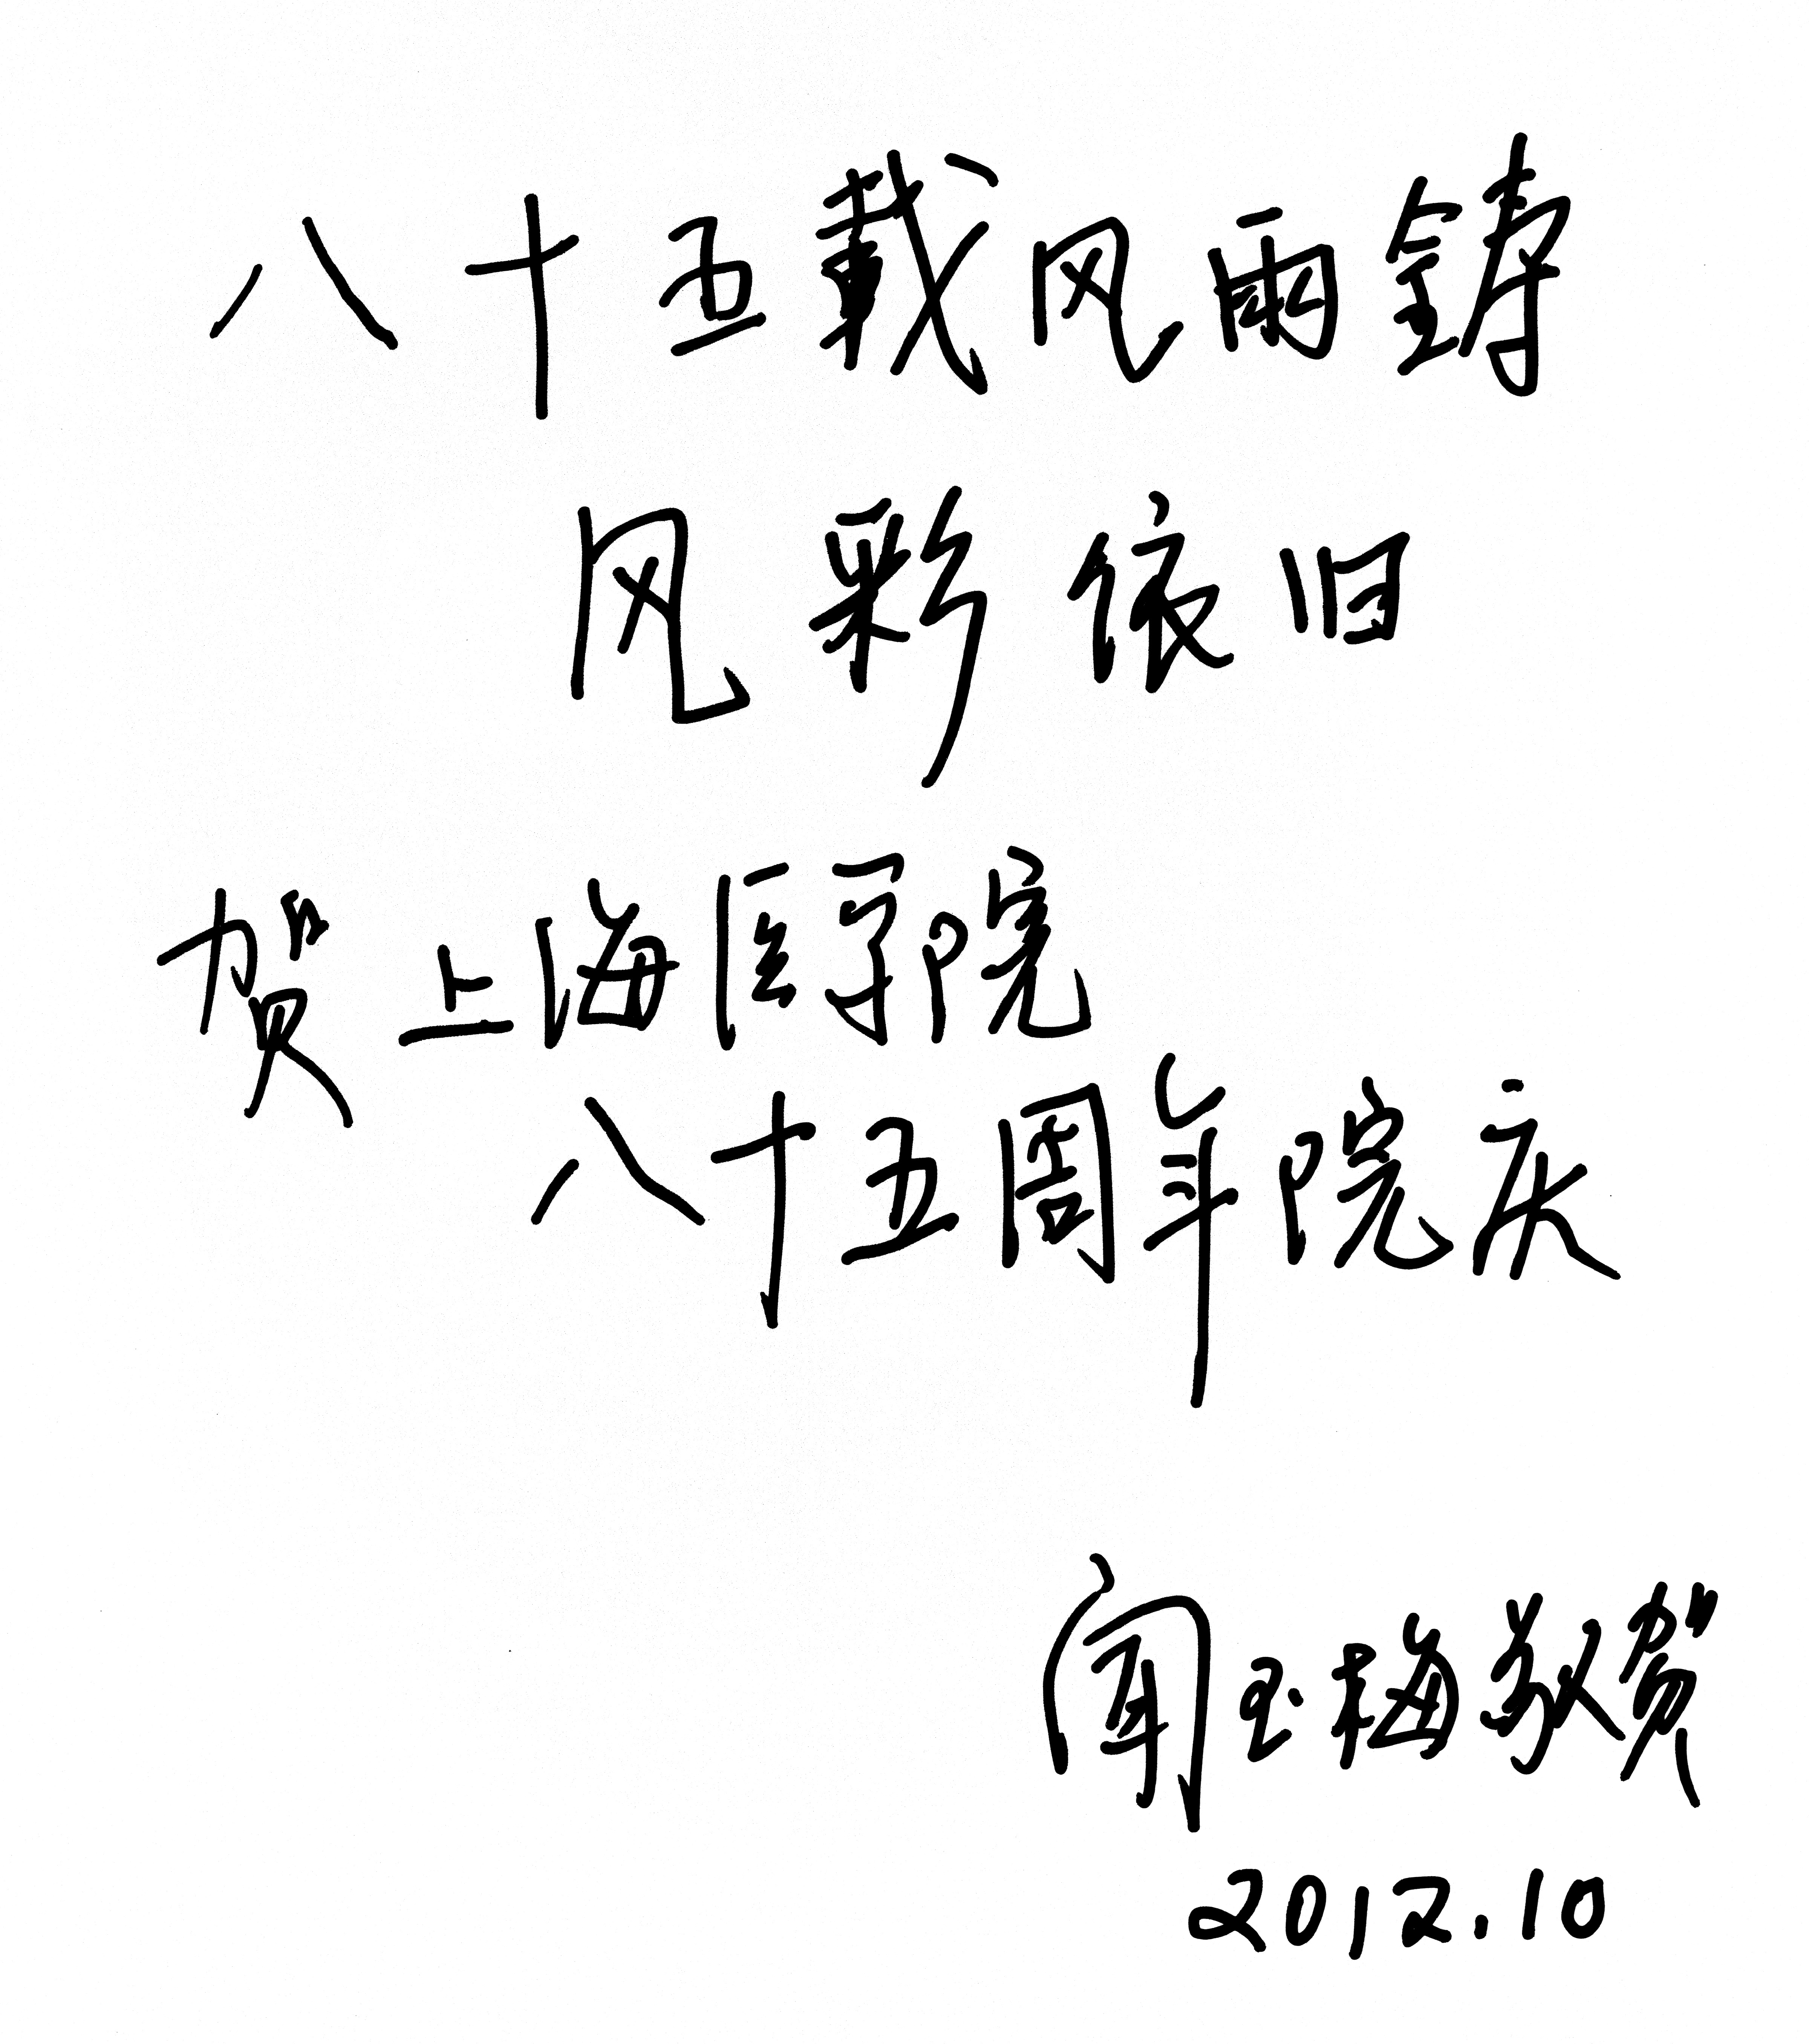 八十五載风雨鑄
风彩依旧
贺上海医学院
八十五周年院庆
闻玉梅敬贺
2012.10